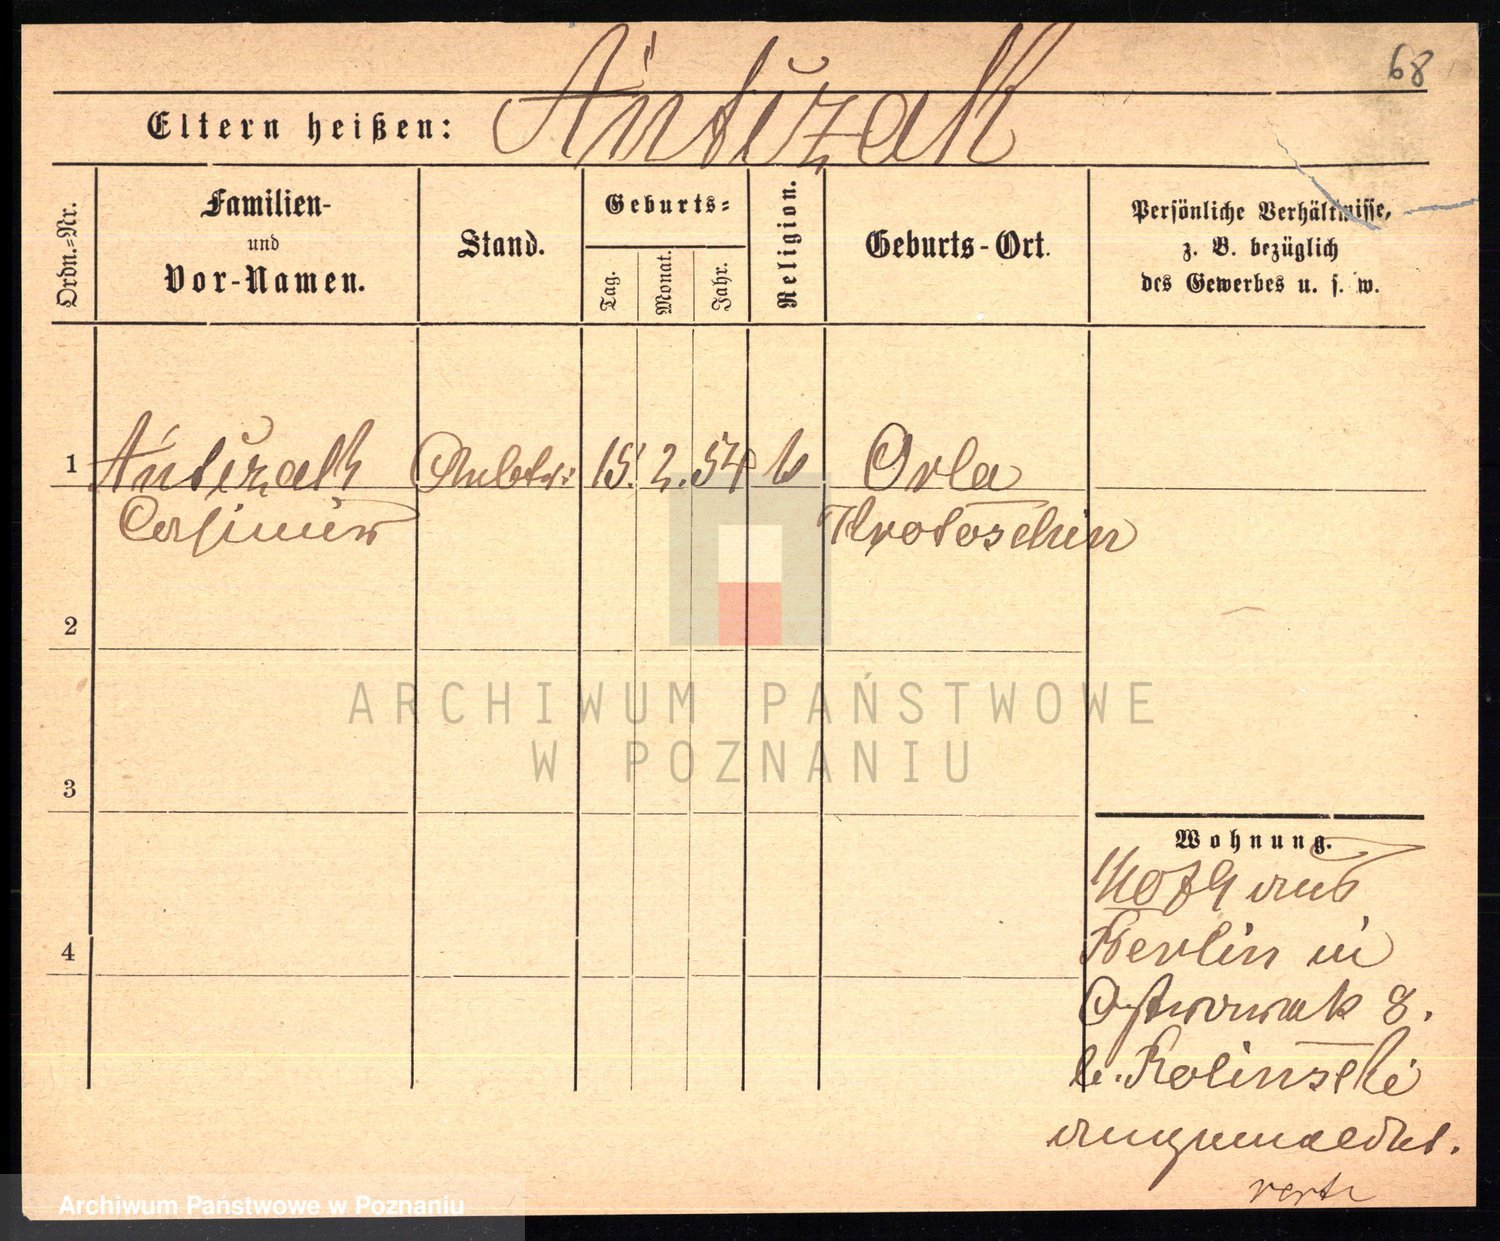 68
Eltern heißen: Antczak
Ordn.-Nr.
Familien-
und
Vor-Namen.
Stand.
Geburts-
Tag.
Monat.
Jahr.
Religion.
Geburts-Ort.
Persönliche Verhältnisse,
z. B. bezüglich
des Gewerbes u. s. w.
1 Antczak 15. 2. 54 Orla
Casimir Krotoschin
2
ARCHIWUM PAŃSTWOWE
W POZNANIU
3
Wohnung.
aus
Berlin in
Ostrowek 8.
b. Rolinski
angemeldet.
4
Archiwum Państwowe w Poznaniu